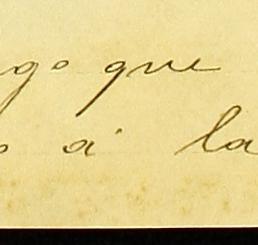 go que
á la